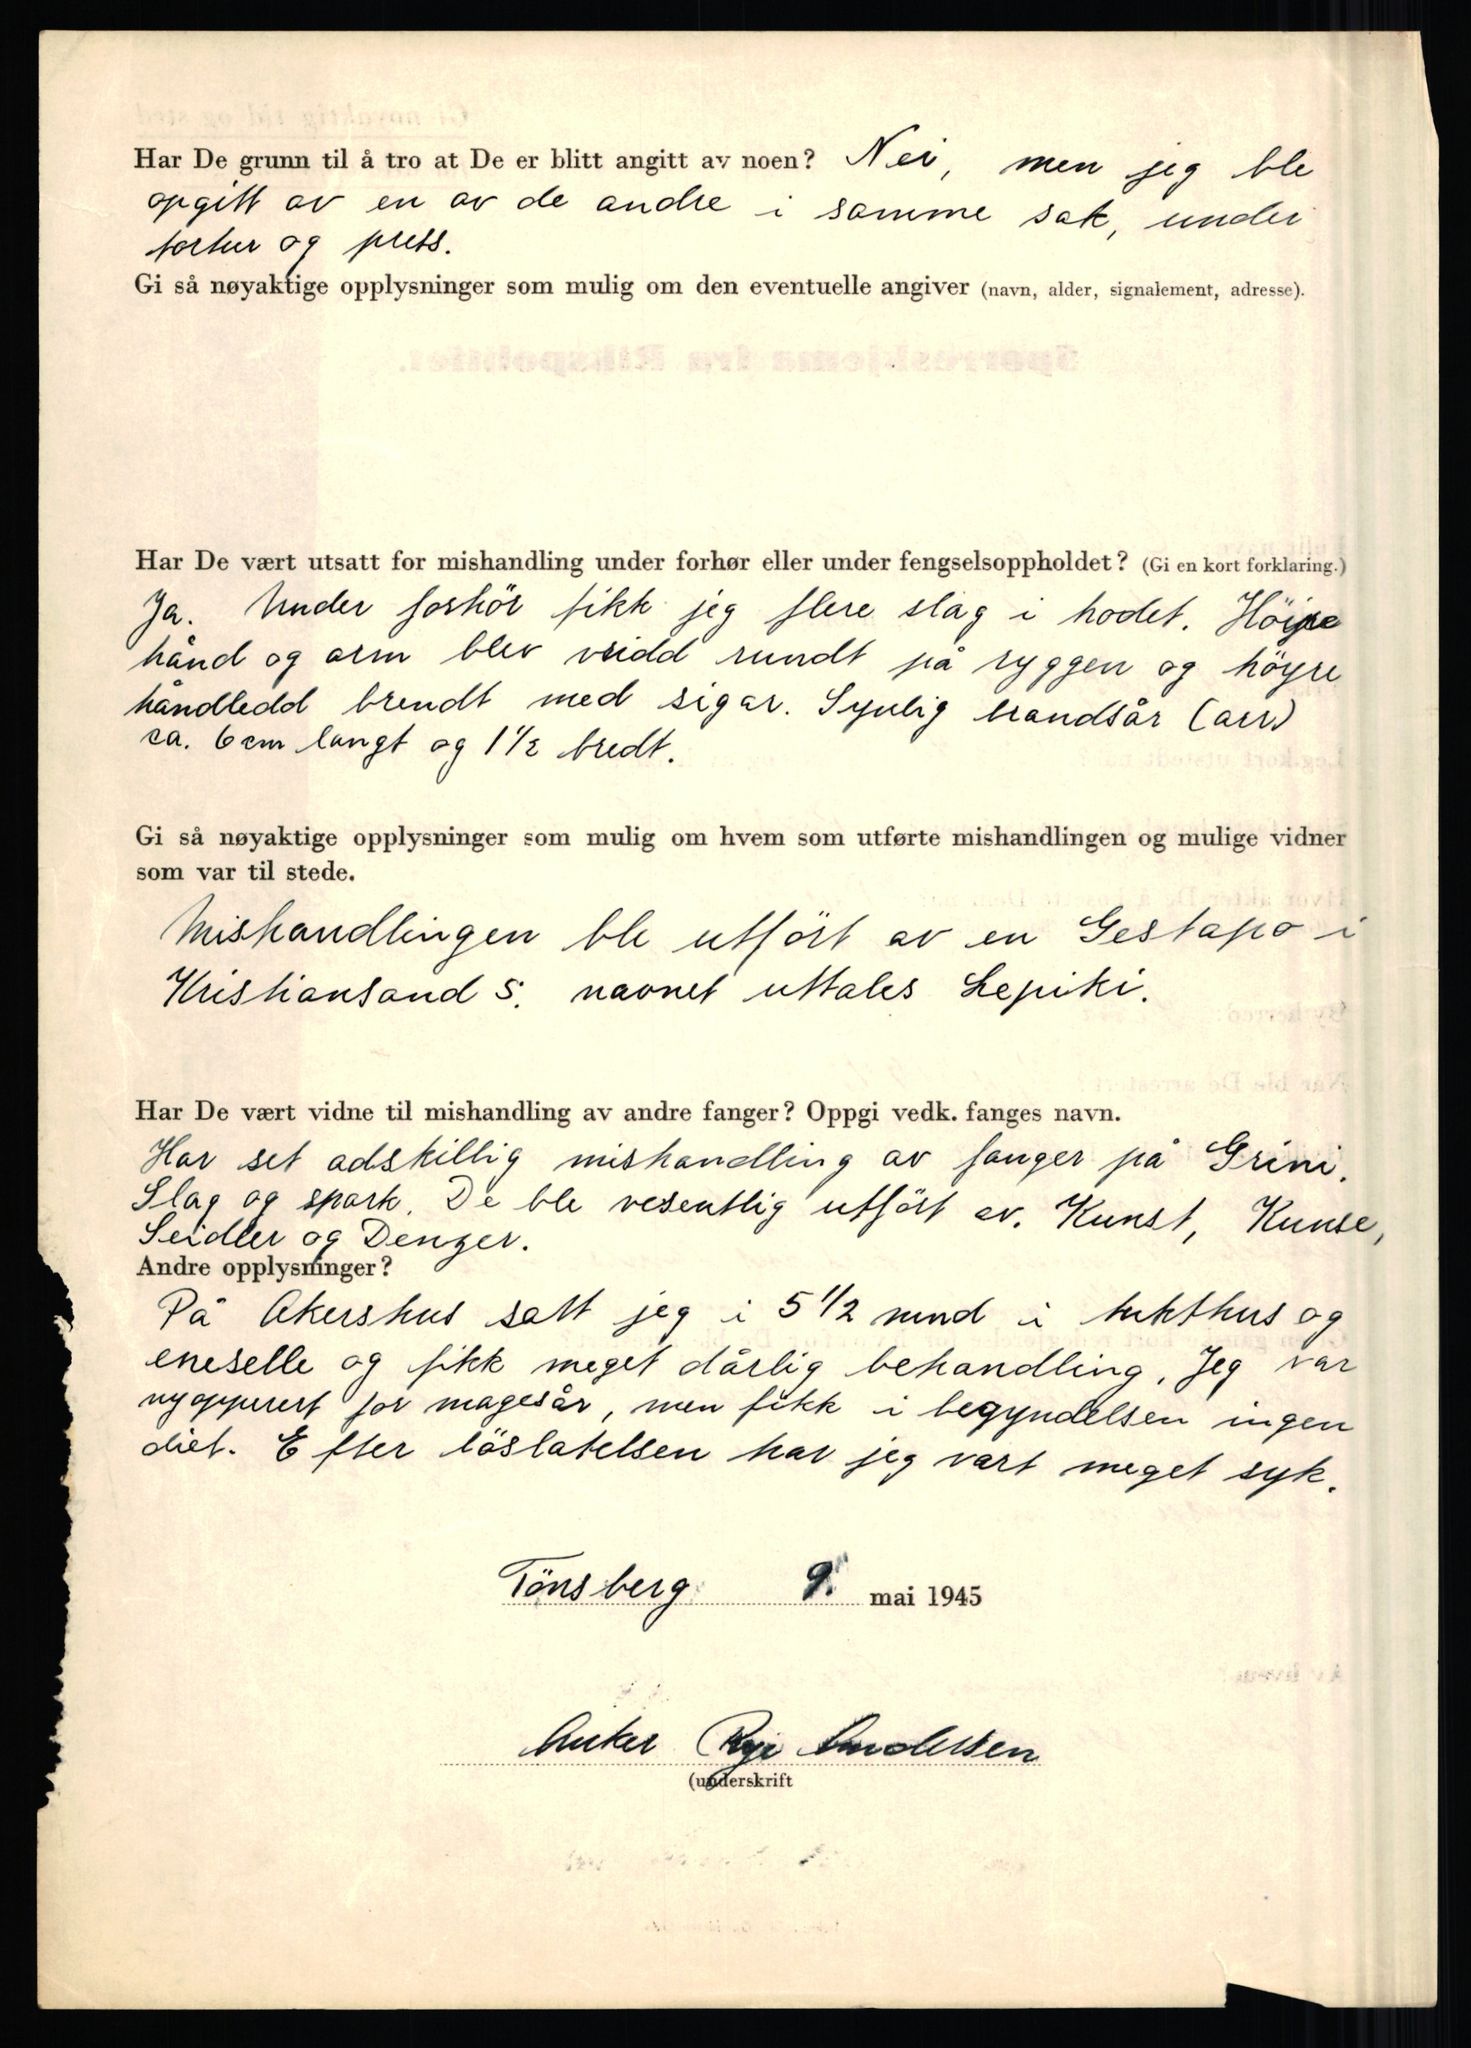 Har De grunn til å tro at De er blitt angitt av noen? Nei, men jeg ble
opgitt av en av de andre i samme sak, under
tortur og press.
Gi så nøyaktige opplysninger som mulig om den eventuelle angiver (navn, alder, signalement, adresse).
Har De vært utsatt for mishandling under forhør eller under fengselsoppholdet? (Gi en kort forklaring.)
Ja. Under forhör fikk jeg flere slag i hodet. Höire
hånd og arm blev vridd rundt på ryggen og höyre
håndledd brendt med sigar. Synlig brandsår (arr)
ca. 6 cm langt og 1 1/2 bredt.
Gi så nøyaktige opplysninger som mulig om hvem som utførte mishandlingen og mulige vidner
som var til stede.
Mishandlingen ble utfört av en Gestapo i
Kristiansand S. navnet uttales Lepiki.
Har De vært vidne til mishandling av andre fanger? Oppgi vedk. fanges navn.
Har set adskillig mishandling av fanger på Grini.
Slag og spark. De ble vesentlig utfört av. Kunst, Kunse,
Seidler og Denzer.
Andre opplysninger?
På Akershus satt jeg i 5 1/2 mnd i tukthus og
eneselle og fikk meget dårlig behandling. Jeg var
nyopperert for magesår, men fikk i begyndelsen ingen
diet. Efter löslatelsen har jeg vært meget syk.
Tönsberg 9. mai 1945
Anker Rye Andersen
(underskrift